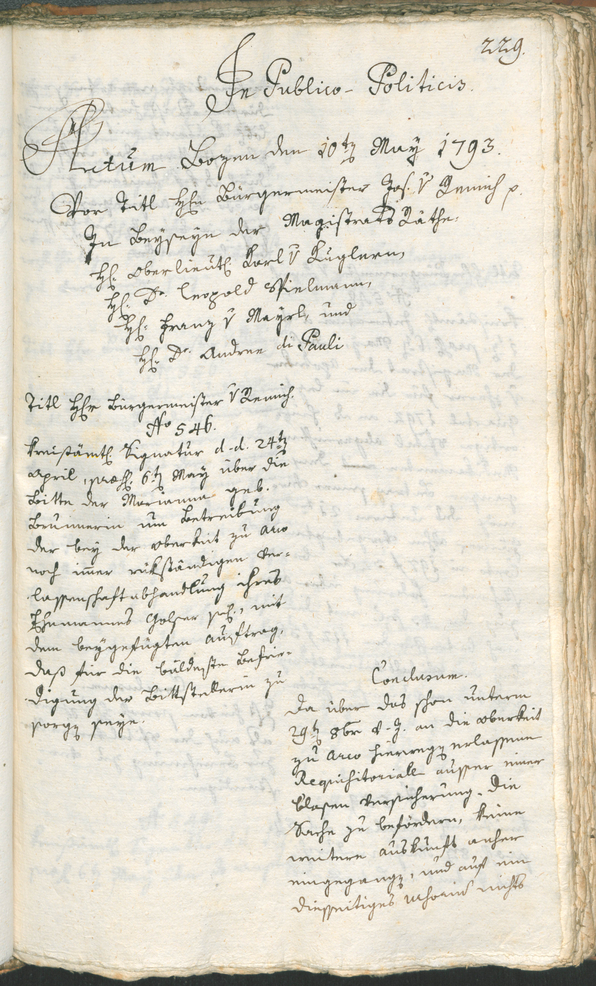 229.
In Publico-Politicis.
Actum Bozen den 10ten May 1793.
Vor Titl Hhr Bürgermeister Jos. v Remich p.
In Beyseyn der Magistrats Räthe:
Hh. Oberlieut. Karl v Küglern,
Hh. Dr. Leopold Spielmann,
Hh. Franz v Mayrl, und
Hh. Dr. Andree di Pauli
Titl Hhr Bürgermeister v Remich.
No 546.
Kreisämtl. Signatur d.d. 24ten
April, praes. 6ten May über die
Bitte der Marianna geb.
Brunnerin um Betreibung
der bey der Oberkeit zu Arco
noch imer rükständigen Ver-
lassenschaftabhandlung ihres
Ehemannes Golser sel., mit
dem beygefügten Auftrag,
daß für die baldeste Befrie-
digung der Bittstellerin zu
sorgen seye.
Conclusum.
Da über das schon unterm
29ten 8br v. J. an die Oberkeit
zu Arco hierwegen erlassene
Requisitoriale ausser einer
blosen Versicherung, die
Sache zu befördern, keine
weitere Auskunft anher
eingegangen, und auf ein
diesseitiges nichts